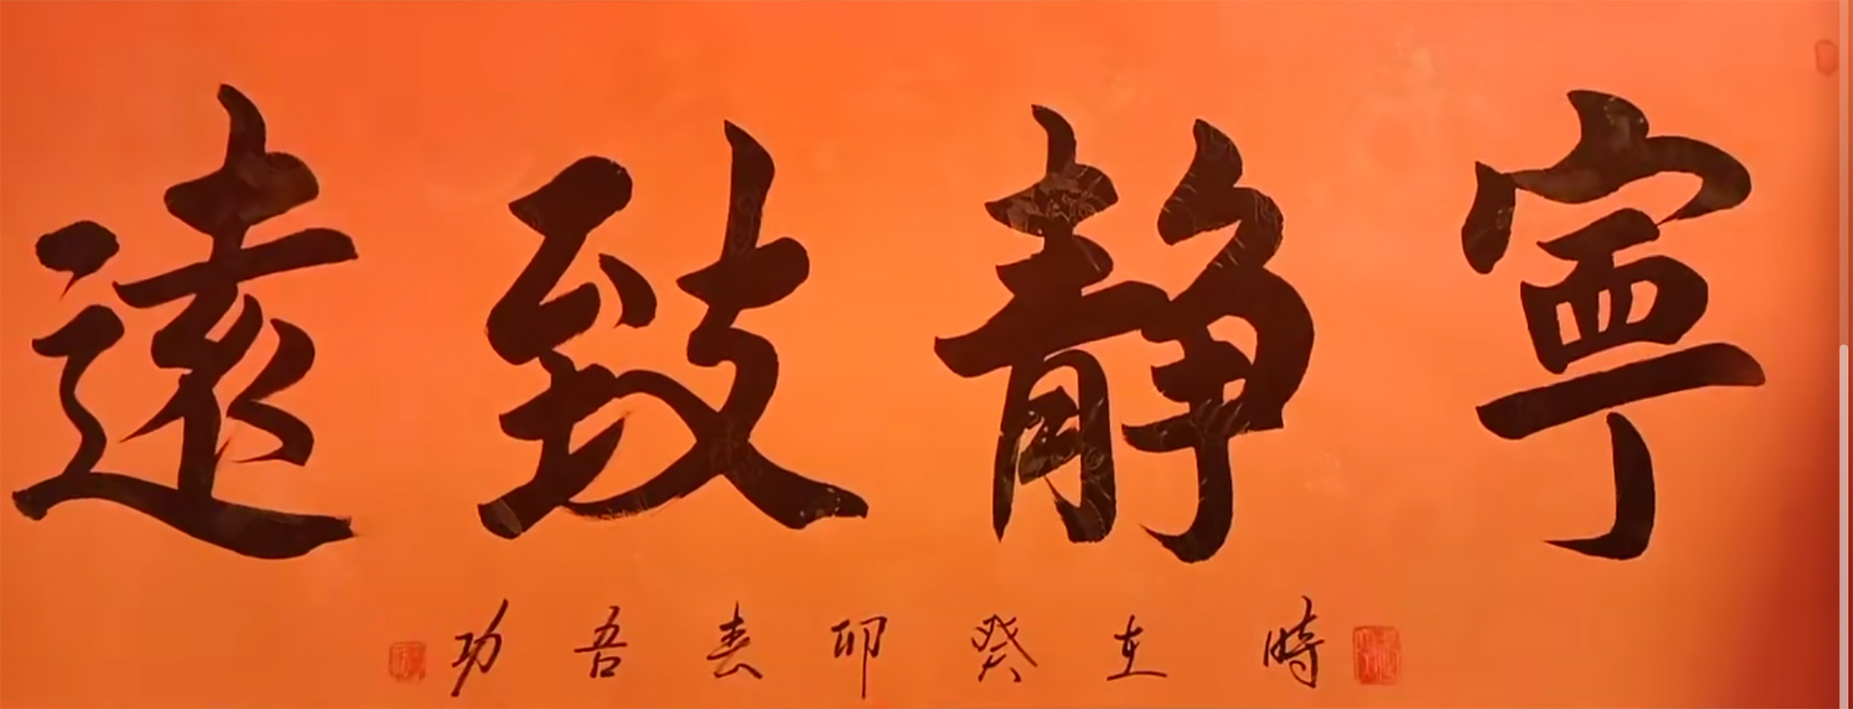 寧靜致遠
時在癸卯春吾功